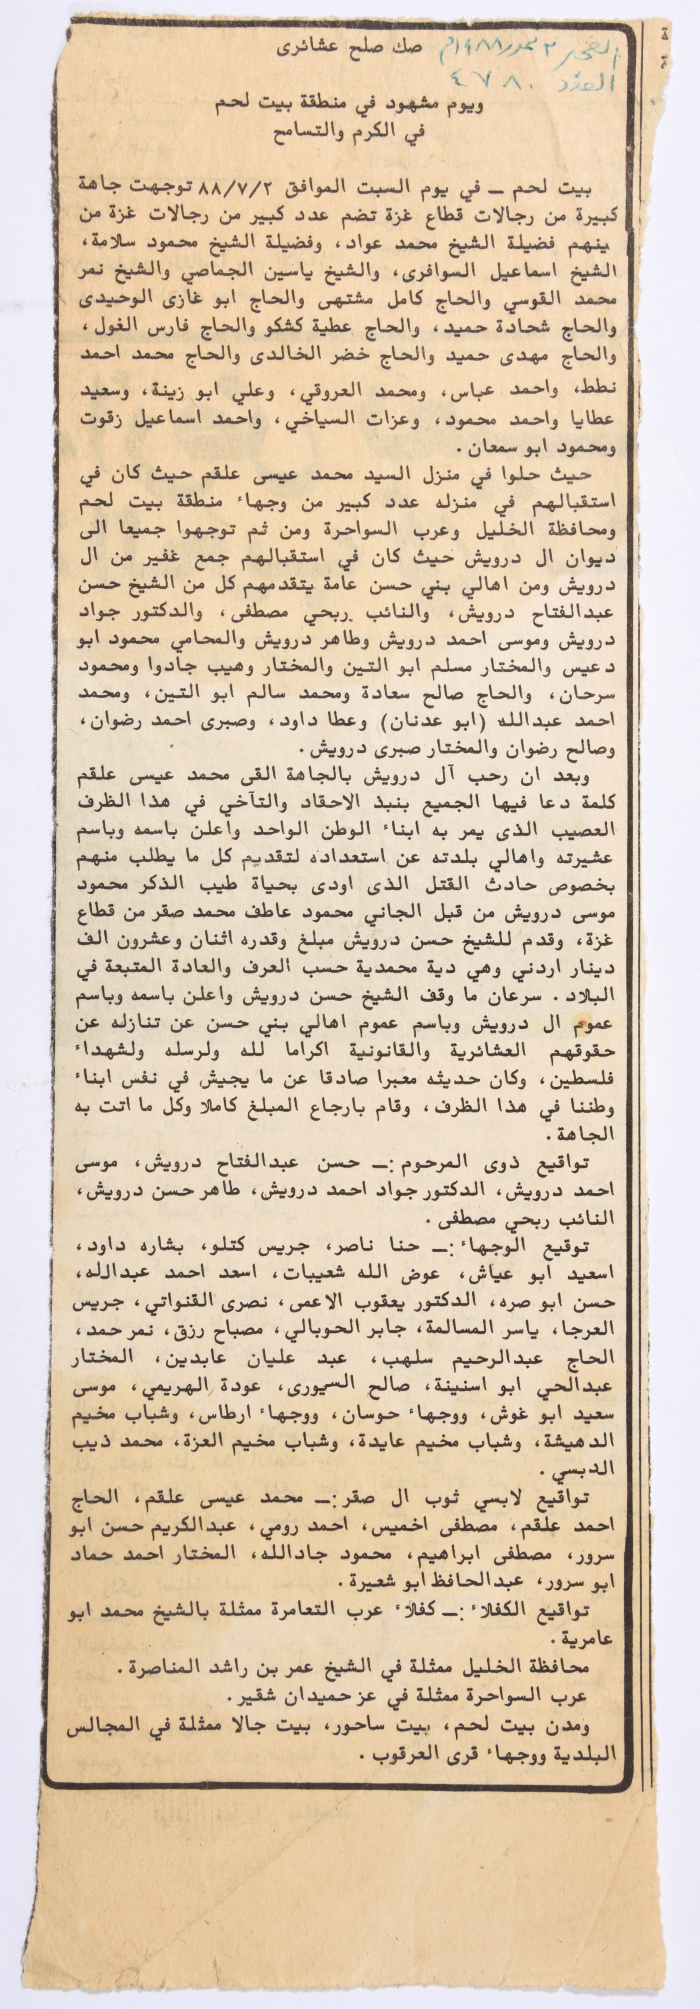 الفجر ٣ تموز ١٩٨٨م
العدد ٤٧٨٠
صك صلح عشائرى
ويوم مشهود في منطقة بيت لحم
في الكرم والتسامح
بيت لحم ــ في يوم السبت الموافق ٨٨/٧/٢ توجهت جاهة
كبيرة من رجالات قطاع غزة تضم عدد كبير من رجالات غزة من
بينهم فضيلة الشيخ محمد عواد، وفضيلة الشيخ محمود سلامة،
الشيخ اسماعيل السوافرى، والشيخ ياسين الجماصي والشيخ نمر
محمد القوسي والحاج كامل مشتهى والحاج ابو غازى الوحيدى
والحاج شحادة حميد، والحاج عطية كشكو والحاج فارس الغول،
والحاج مهدى حميد والحاج خضر الخالدى والحاج محمد احمد
نطط، واحمد عباس، ومحمد العروقي، وعلي ابو زينة، وسعيد
عطايا واحمد محمود، وعزات السياخي، واحمد اسماعيل زقوت
ومحمود ابو سمعان.
حيث حلوا في منزل السيد محمد عيسى علقم حيث كان في
استقبالهم في منزله عدد كبير من وجهاء منطقة بيت لحم
ومحافظة الخليل وعرب السواحرة ومن ثم توجهوا جميعا الى
ديوان ال درويش حيث كان في استقبالهم جمع غفير من ال
درويش ومن اهالي بني حسن عامة يتقدمهم كل من الشيخ حسن
عبدالفتاح درويش، والنائب ربحي مصطفى، والدكتور جواد
درويش وموسى احمد درويش وطاهر درويش والمحامي محمود ابو
دعيس والمختار مسلم ابو التين والمختار وهيب جادوا ومحمود
سرحان، والحاج صالح سعادة ومحمد سالم ابو التين، ومحمد
احمد عبدالله (ابو عدنان) وعطا داود، وصبرى احمد رضوان،
وصالح رضوان والمختار صبرى درويش.
وبعد ان رحب آل درويش بالجاهة القى محمد عيسى علقم
كلمة دعا فيها الجميع بنبذ الاحقاد والتآخي في هذا الظرف
العصيب الذى يمر به ابناء الوطن الواحد واعلن باسمه وباسم
عشيرته واهالي بلدته عن استعداده لتقديم كل ما يطلب منهم
بخصوص حادث القتل الذى اودى بحياة طيب الذكر محمود
موسى درويش من قبل الجاني محمود عاطف محمد صقر من قطاع
غزة، وقدم للشيخ حسن درويش مبلغ وقدره اثنان وعشرون الف
دينار اردني وهي دية محمدية حسب العرف والعادة المتبعة في
البلاد. سرعان ما وقف الشيخ حسن درويش واعلن باسمه وباسم
عموم ال درويش وباسم عموم اهالي بني حسن عن تنازله عن
حقوقهم العشائرية والقانونية اكراما لله ولرسله ولشهداء
فلسطين، وكان حديثه معبرا صادقا عن ما يجيش في نفس ابناء
وطننا في هذا الظرف، وقام بارجاع المبلغ كاملا وكل ما اتت به
الجاهة.
تواقيع ذوى المرحوم:ــ حسن عبدالفتاح درويش، موسى
احمد درويش، الدكتور جواد احمد درويش، طاهر حسن درويش،
النائب ربحي مصطفى.
توقيع الوجهاء:ــ حنا ناصر، جريس كتلو، بشاره داود،
اسعيد ابو عياش، عوض الله شعيبات، اسعد احمد عبدالله،
حسن ابو صره، الدكتور يعقوب الاعمى، نصرى القنواتي، جريس
العرجا، ياسر المسالمة، جابر الحوبالي، مصباح رزق، نمر حمد،
الحاج عبدالرحيم سلهب، عبد عليان عابدين، المختار
عبدالحي ابو اسنينة، صالح السيورى، عودة الهريمي، موسى
سعيد ابو غوش، ووجهاء حوسان، ووجهاء ارطاس، وشباب مخيم
الدهيشة، وشباب مخيم عايدة، وشباب مخيم العزة، محمد ذيب
الدبسي.
تواقيع لابسي ثوب ال صقر:ــ محمد عيسى علقم، الحاج
احمد علقم، مصطفى اخميس، احمد رومي، عبدالكريم حسن ابو
سرور، مصطفى ابراهيم، محمود جادالله، المختار احمد حماد
ابو سرور، عبدالحافظ ابو شعيرة.
تواقيع الكفلاء:ــ كفلاء عرب التعامرة ممثلة بالشيخ محمد ابو
عامرية.
محافظة الخليل ممثلة في الشيخ عمر بن راشد المناصرة.
عرب السواحرة ممثلة في عز حميدان شقير.
ومدن بيت لحم، بيت ساحور، بيت جالا ممثلة في المجالس
البلدية ووجهاء قرى العرقوب.